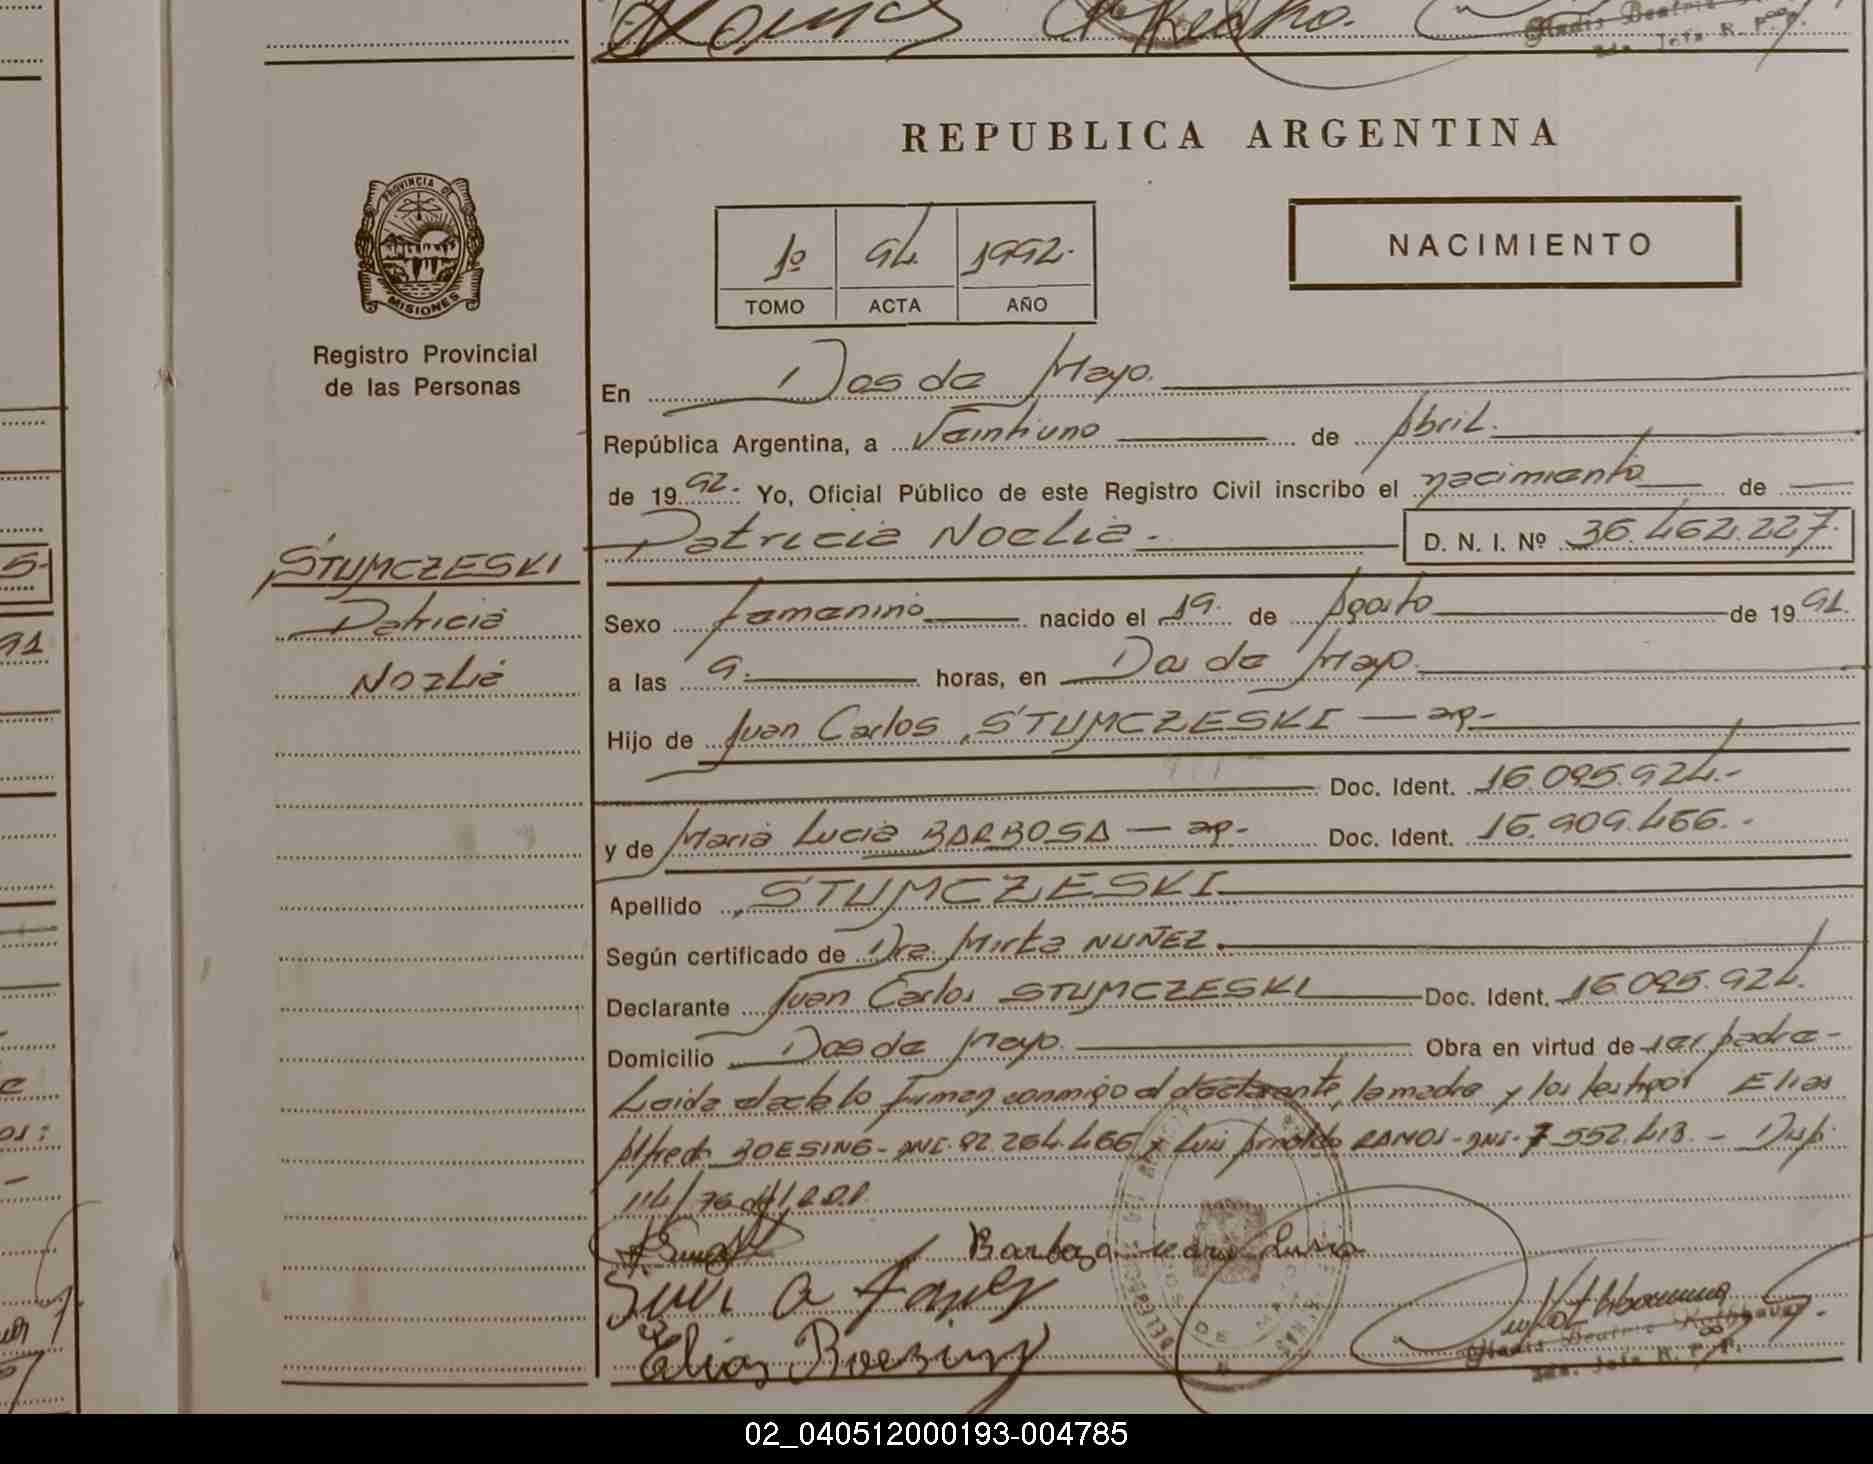 REPUBLICA ARGENTINA
PROVINCIA DE
MISIONES
Registro Provincial
de las Personas
1º 94 1992.
TOMO ACTA AÑO
NACIMIENTO
En Dos de Mayo.
República Argentina, a Veintiuno de Abril.
de 1992. Yo, Oficial Público de este Registro Civil inscribo el nacimiento de
Patricia Noelia. D. N. I. Nº 36.462.227.
STUMCZESKI
Patricia
Noelia
Sexo femenino nacido el 19. de Agosto de 1991.
a las 9. horas, en Dos de Mayo.
Hijo de Juan Carlos STUMCZESKI — ap-
Doc. Ident. 16.095.924.-
y de Maria Lucia BARBOSA — ap- Doc. Ident. 16.909.466.-
Apellido STUMCZESKI
Según certificado de Dra. Mirta NUÑEZ.
Declarante Juan Carlos STUMCZESKI Doc. Ident. 16.095.924.
Domicilio Dos de Mayo. Obra en virtud de ser padre-
Leida el acta lo firman conmigo el declarante, la madre y los testigos Elias
Alfredo BOESING- DNI. 92.264.466 y Luis Arnoldo RAMOS- DNI- 7.552.413. - Disp.
114/76
Elias Boesing
02_040512000193-004785